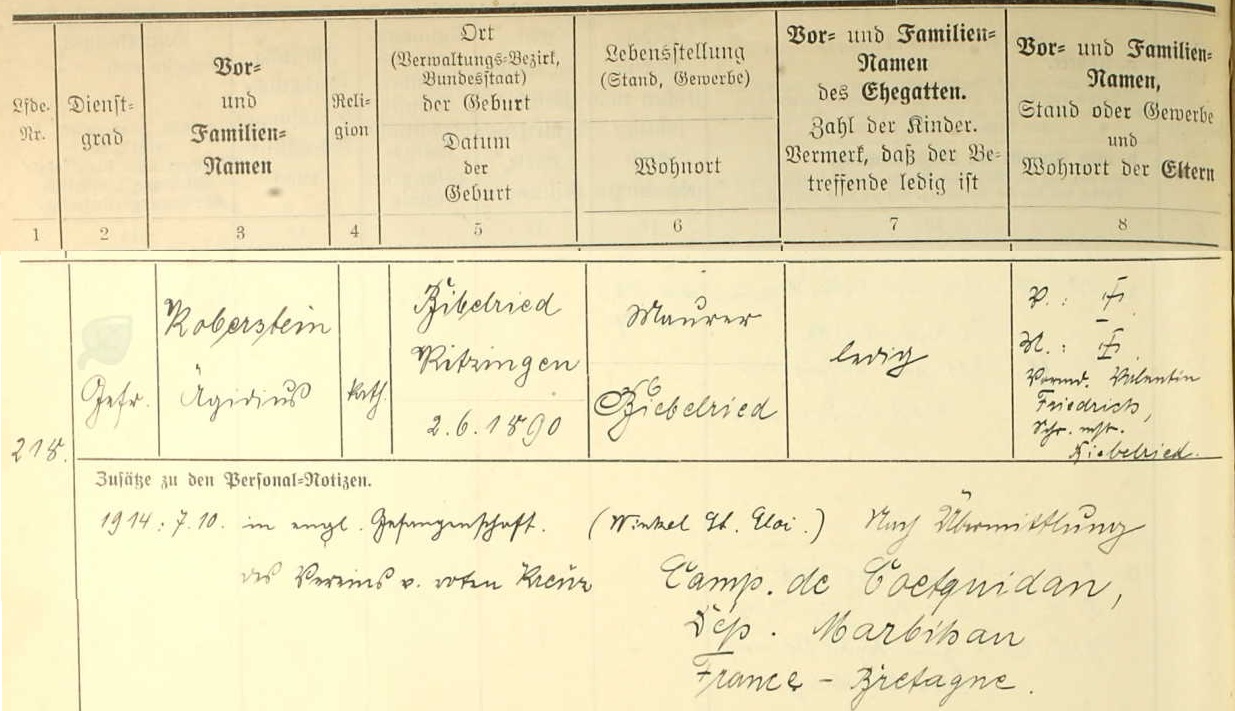 Lfde.
Nr.
Dienst-
grad
Vor-
und
Familien-
Namen
Reli-
gion
Ort
(Verwaltungs-Bezirk,
Bundesstaat)
der Geburt
Datum
der
Geburt
Lebensstellung
(Stand, Gewerbe)
Wohnort
Vor- und Familien-
Namen
des Ehegatten.
Zahl der Kinder.
Vermerk, daß der Be-
treffende ledig ist
Vor- und Familien-
Namen,
Stand oder Gewerbe
und
Wohnort der Eltern
1 2 3 4 5 6 7 8
218.
Gefr.
Koberstein
Ägidius
kath.
Bibelried
Kitzingen
2.6.1890
Maurer
Biebelried
ledig
V. : †.
M. : †.
Vormd. Valentin
Friedrich,
Biebelried.
Zusätze zu den Personal-Notizen.
1914: 7.10. in engl. Gefangenschaft. (Winkel St. Eloi.) Nach Übermittlung
des Vereins v. roten Kreuz Camp. de Coetquidan,
Dép. Morbihan
France - Bretagne.